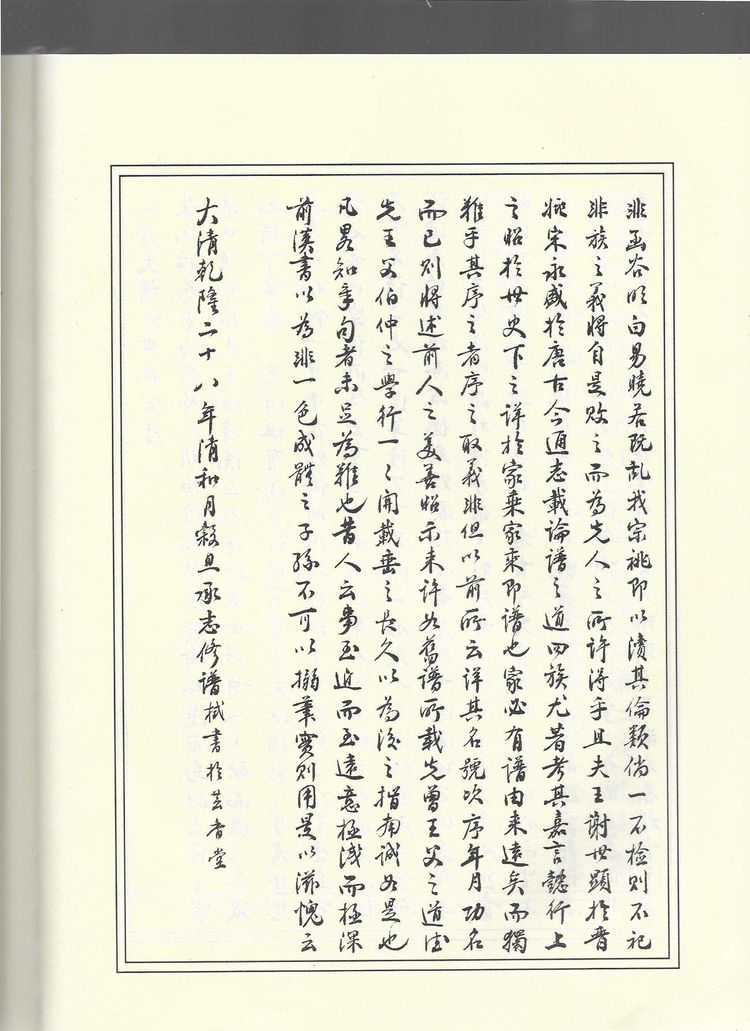 非函谷明白易曉若阮乱我宗祧即以瀆其倫類倘一不检則不祀
非族之義將自是败之而為先人之所許得乎且夫王謝世顯於晋
姬宋永盛於唐古今通志載論譜之道四族尤著考其嘉言懿行上
之昭於世史下之詳於家乘家乘即譜也家必有譜由来遠矣而獨
難乎其序之者序之取義非但以前所云詳其名號次序年月功名
而已則將述前人之美善昭示来許如舊譜所載先曾王父之道德
先王父伯仲之學行一之開載垂之長久以為後之指南誠如是也
凡畧知章句者未足為難也昔人云事至近而至遠意極浅而極深
前漢書以為非一色成體之子孫不可以搦筆實則用是以滋愧云
大清乾隆二十八年清和月穀旦承志修譜栻書於芸香堂